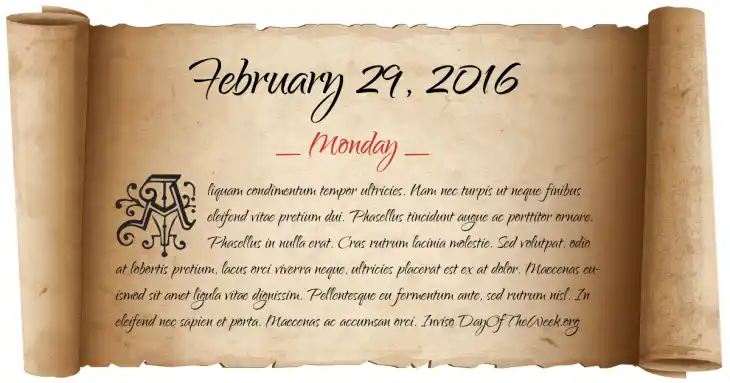 February 29, 2016
_ Monday _
Aliquam condimentum tempor ultricies. Nam nec turpis ut neque finibus
eleifend vitae pretium dui. Phasellus tincidunt augue ac porttitor ornare.
Phasellus in nulla erat. Cras rutrum lacinia molestie. Sed volutpat, odio
at lobortis pretium, lacus orci viverra neque, ultricies placerat est ex at dolor. Maecenas eu-
ismod sit amet ligula vitae dignissim. Pellentesque eu fermentum ante, sed rutrum nisl. In
eleifend nec sapien et porta. Maecenas ac accumsan orci. Inviso DayOfTheWeek.org